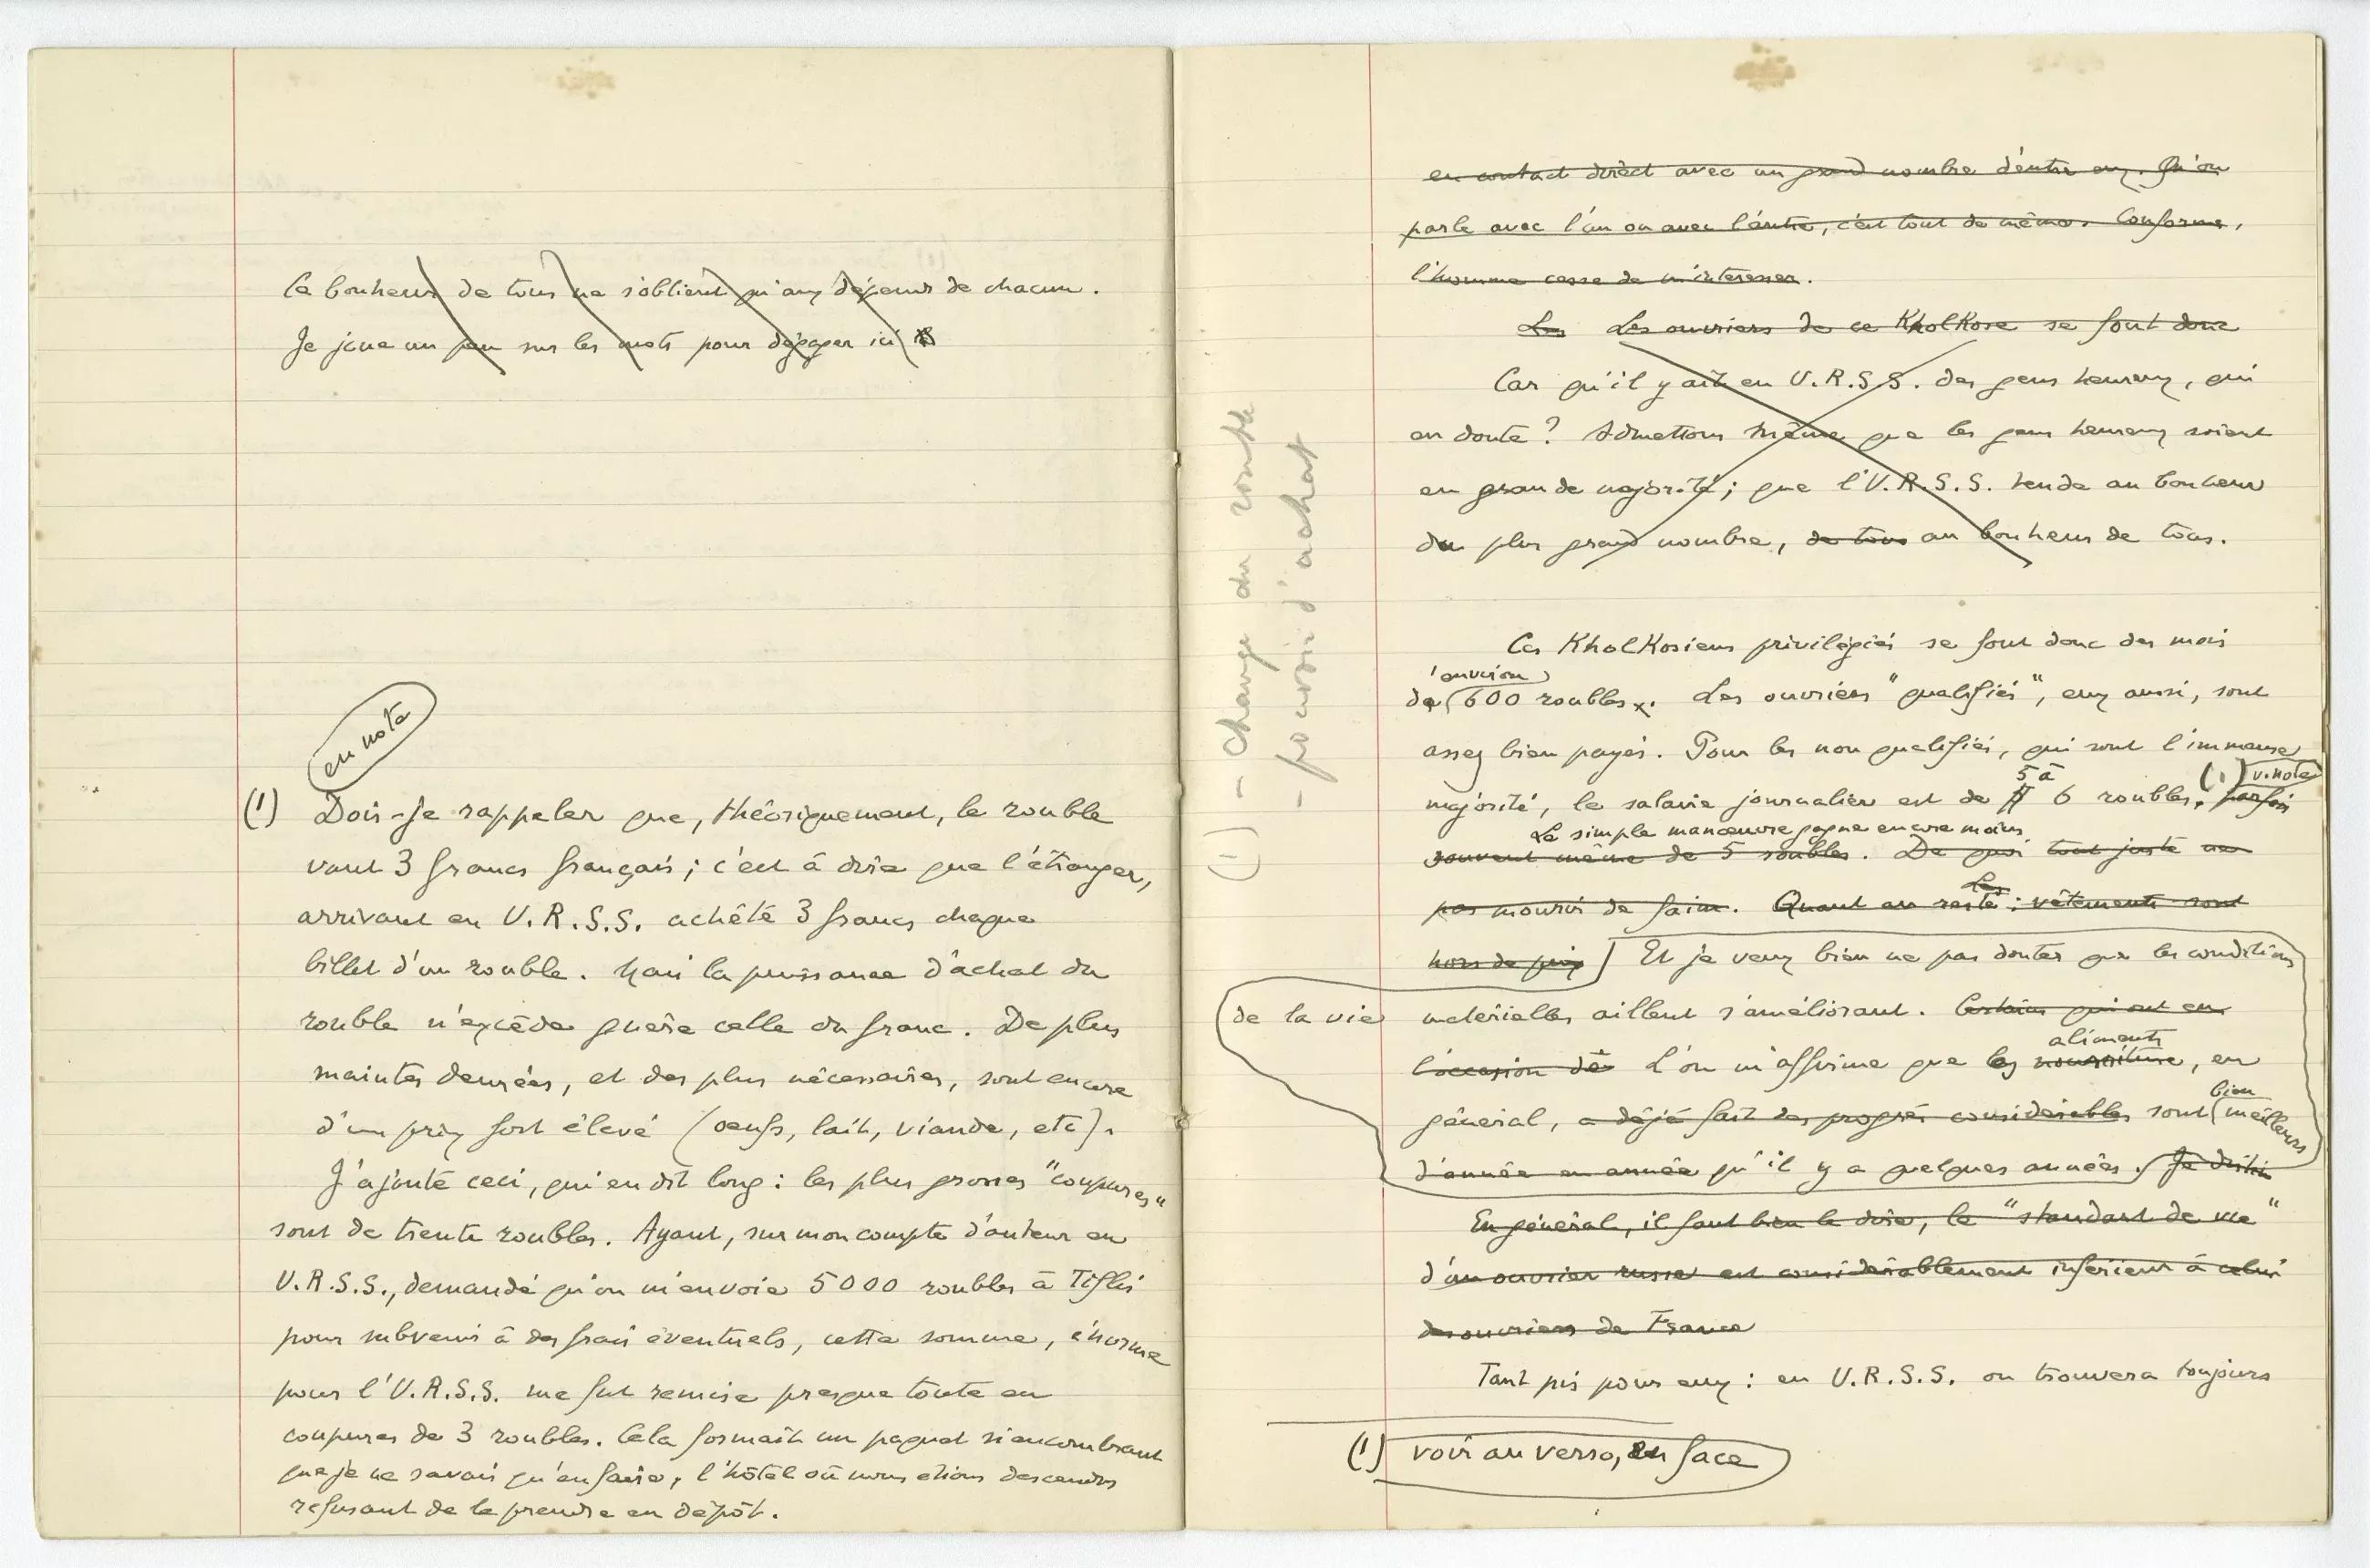 Le bonheur de tous ne s'obtient qu'aux dépens de chacun.
Je joue un peu sur les mots pour dégager ici
en note
(1) Dois-je rappeler que, théoriquement, le rouble
vaut 3 francs français ; c'est à dire que l'étranger,
arrivant en U.R.S.S. achète 3 francs chaque
billet d'un rouble. Mais la puissance d'achat du
rouble n'excède guère celle du franc. De plus
maintes denrées, et des plus nécessaires, sont encore
d'un prix fort élevé (oeufs, lait, viande, etc).
J'ajoute ceci, qui en dit long : les plus grosses "coupures"
sont de trente roubles. Ayant, sur mon compte d'auteur en
U.R.S.S., demandé qu'on m'envoie 5000 roubles à Tiflis
pour subvenir à des frais éventuels, cette somme, énorme
pour l'U.R.S.S. me fut remise presque toute en
coupures de 3 roubles. Cela formait un paquet si encombrant
que je ne savais qu'en faire, l'hôtel où nous étions descendus
refusant de le prendre en dépôt.
(1) - change du rouble
- pouvoir d'achat
en contact direct avec un grand nombre d'entre eux. Qu'on
parle avec l'un ou avec l'autre, c'est tout de même. Conforme,
l'homme cesse de m'intéresser.
Les Les ouvriers de ce KholKose se font donc
Car qu'il y ait en U.R.S.S. des gens heureux, qui
en doute ? Admettons même que les gens heureux soient
en grande majorité ; que l'U.R.S.S. tende au bonheur
du plus grand nombre, de tous au bonheur de tous.
Ces KholKosiens privilégiés se font donc des mois
environ
de 600 roubles. Les ouvriers "qualifiés", eux aussi, sont
assez bien payés. Pour les non qualifiés, qui sont l'immense
5 à (1) v. note
majorité, le salaire journalier est de 6 roubles, parfois
Le simple manoeuvre gagne encore moins
souvent même de 5 roubles. De quoi tout juste ne
Les
pas mourir de faim. Quant au reste : vêtements sont
hors de prix Et je veux bien ne pas douter que les conditions
de la vie matérielles aillent s'améliorant. Certains qui ont eu
aliments
l'occasion de L'on m'affirme que les nourriture, en
bien
général, a déjà fait des progrès considérables sont meilleurs
d'année en année qu'il y a quelques années. Je
En général, il faut bien le dire, le "standart de vie"
d'un ouvrier russe est considérablement inférieur à celui
des ouvriers de France
Tant pis pour eux : en U.R.S.S. on trouvera toujours
(1) voir au verso, en face